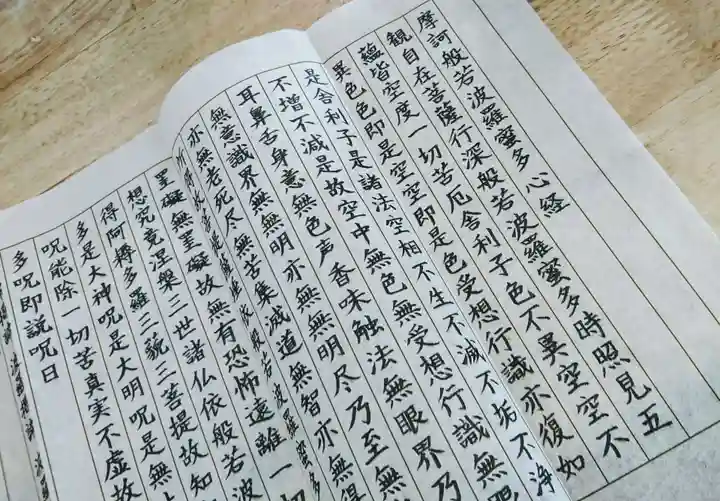 摩訶般若波羅蜜多心経
観自在菩薩行深般若波羅蜜多時照見五
蘊皆空度一切苦厄舎利子色不異空空不
異色色即是空空即是色受想行識亦復如
是舎利子是諸法空相不生不滅不垢不浄
不増不減是故空中無色無受想行識無
耳鼻舌身意無色声香味触法無眼界乃
無意識界無無明亦無無明尽乃至無
亦無老死尽無苦集滅道無智亦無得
所得故菩提薩埵依般若波羅蜜多
罣礙無罣礙故無有恐怖遠離一切
想究竟涅槃三世諸仏依般若波
得阿耨多羅三藐三菩提故知
多是大神呪是大明呪是無
呪能除一切苦真実不虚故
多呪即説呪日